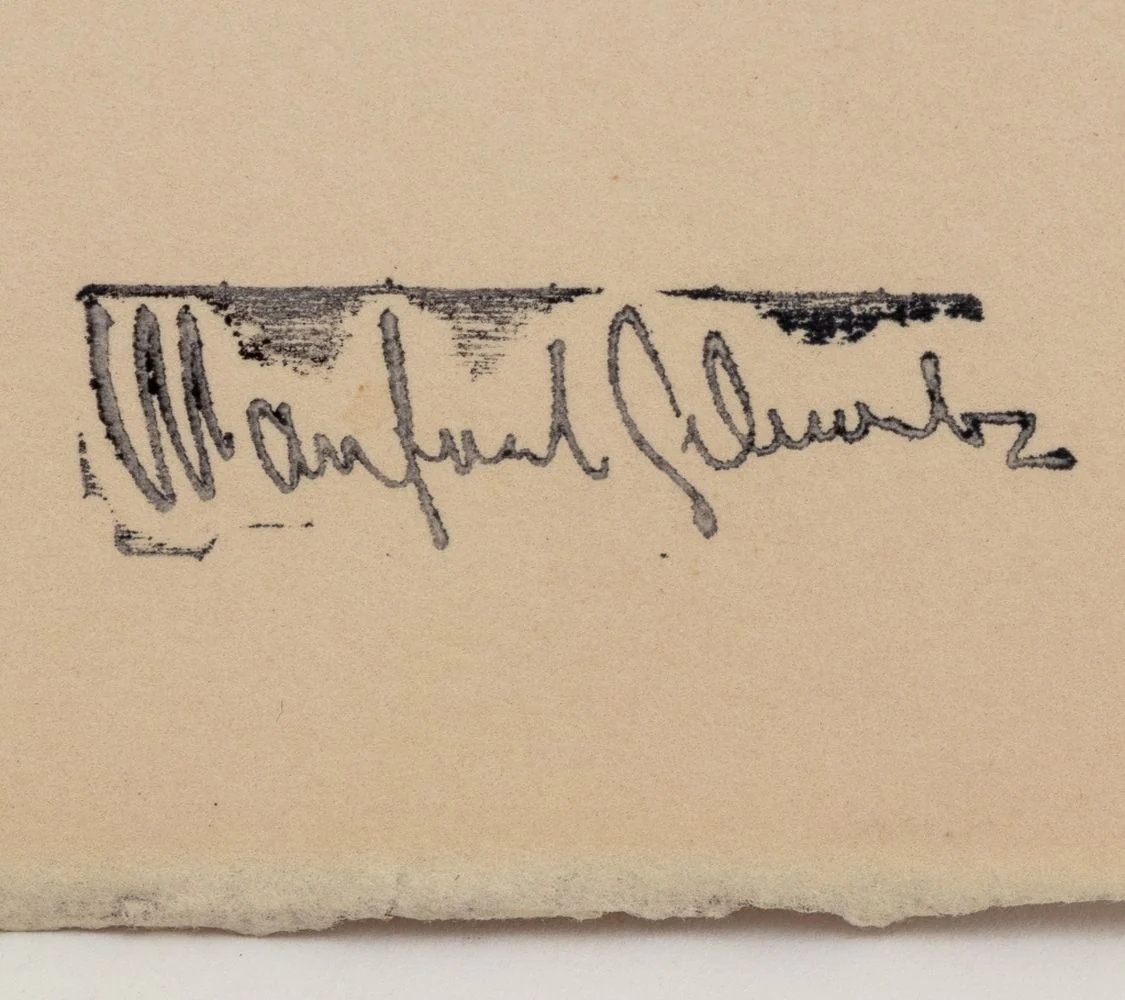 Manfred Schwartz